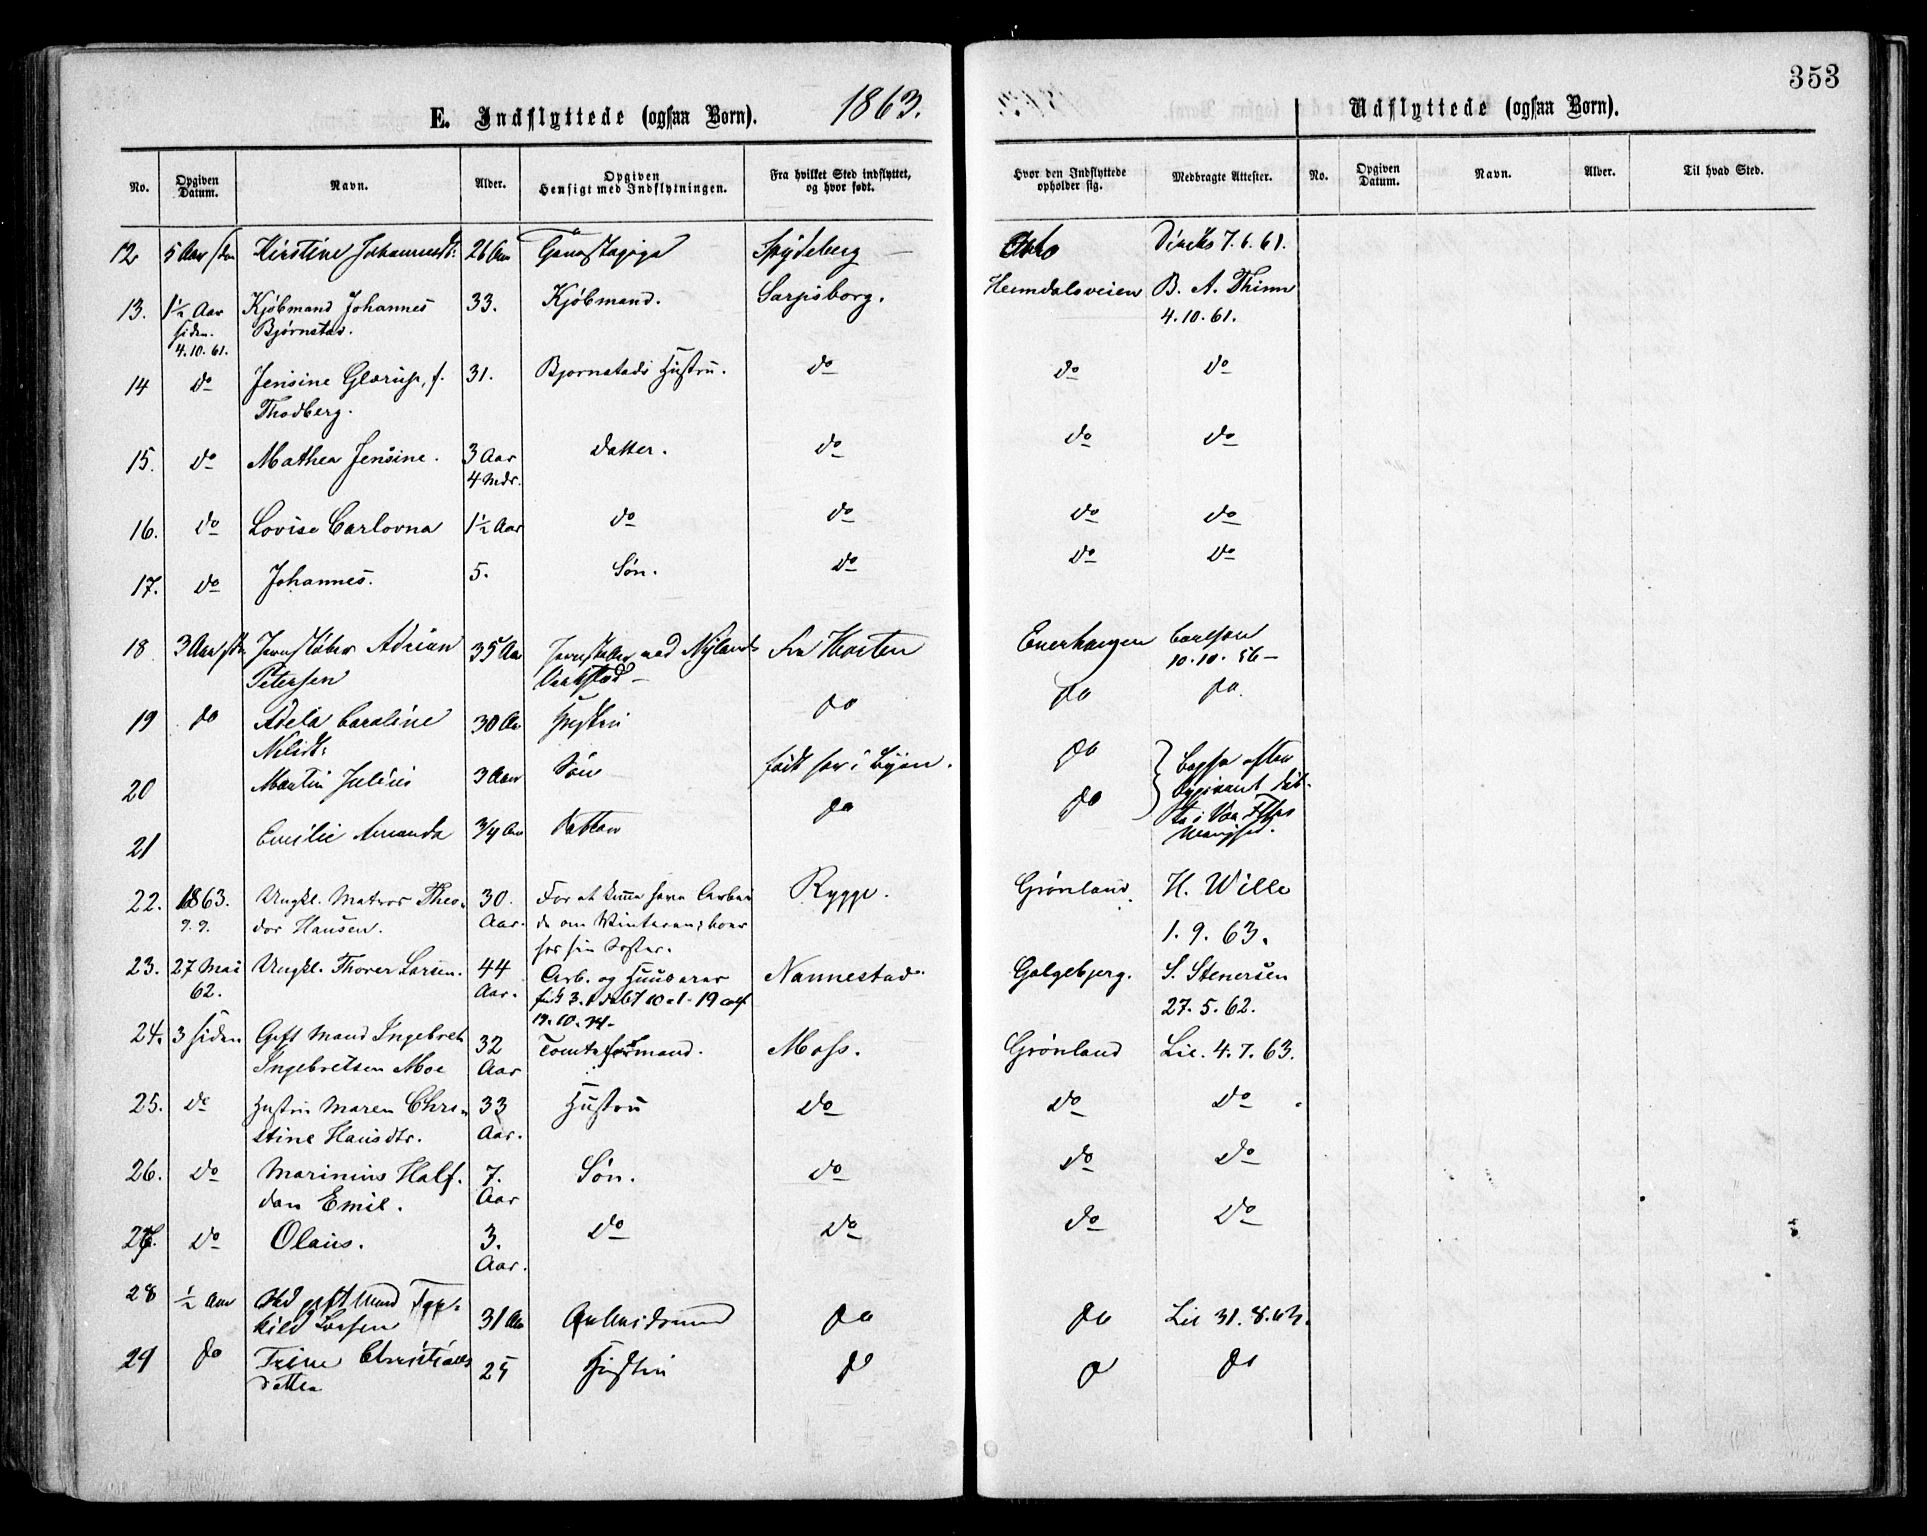 353
E. Indflyttede (ogsaa Børn). 1863.
Udflyttede (ogsaa Børn).
No. Opgiven Datum. Navn. Alder. Opgiven Hensigt med Indflytningen. Fra hvilket Sted indflyttet, og hvor født. Hvor den Indflyttede opholder sig. Medbragte Attester. No. Opgiven Datum. Navn. Alder. Til hvad Sted.
12 5 Aar siden Kirstine Johannesdt: 26 Aar Spydeberg Oslo Diriks 7.6.61.
13. 1½ Aar Kjøbmand Johannes 33. Kjøbmand. Sarpsborg. Heimdalsveien B. A. Thinn
siden. Bjørnstad. 4.10.61.
4.10.61.
14 do Jensine Glærup, f. 31. Bjornstads Hustru. do do do
Thodberg.
15. do Mathea Jensine. 3 Aar datter. do do do
4 Mdr.
16. do Lovise Carlovna 1½ Aar do do do do
17. do Johannes. 5. Søn. do do do
18 3 Aar siden Jernstøber Adrian 35 Aar Jernstøber ved Nylands Fra Horten Enerhaugen Carlson
Petersen Værksted 10.10.56
19 do Adela Caroline 30 Aar Hustru do do do.
Nilsdt:
20 Martin Julius 3 Aar Søn født her i Byen. do
21 Emilie Amanda 3/4 Aar Datter do do
22. 1863. Ungkl. Matros Theo- 30. For at kunne have Arbei- Rygge. Grønland. H. Wille
9.9. dor Hansen. Aar. de om Vinteren; boer 1.9.63.
hos sin Søster.
23. 27 Mai Ungkl. Thorer Larsen. 44 Arb. og Huusarar Nannestad. Galgebjerg. S. Stenersen
62. Aar. 27.5.62.
19.10.74
24. 3 siden Gift Mand Ingebret 32 Tomteformand. Moss. Grønland Lie. 4.7.63.
Ingebretsen Moe Aar
25. do Hustru Maren Chri- 33 Hustru do do do
stine Hansdtr. Aar.
26. do Marinius Half- 7. Søn. do do do
dan Emil. Aar
27. do Olaus. 3. do do do do
Aar.
28 ½ Aar gift Mand 31 Aar Arbeidsmand do do Lie 31.8.63.
Larsen
29 do Trine Christians 25 Hustru do do do
datter